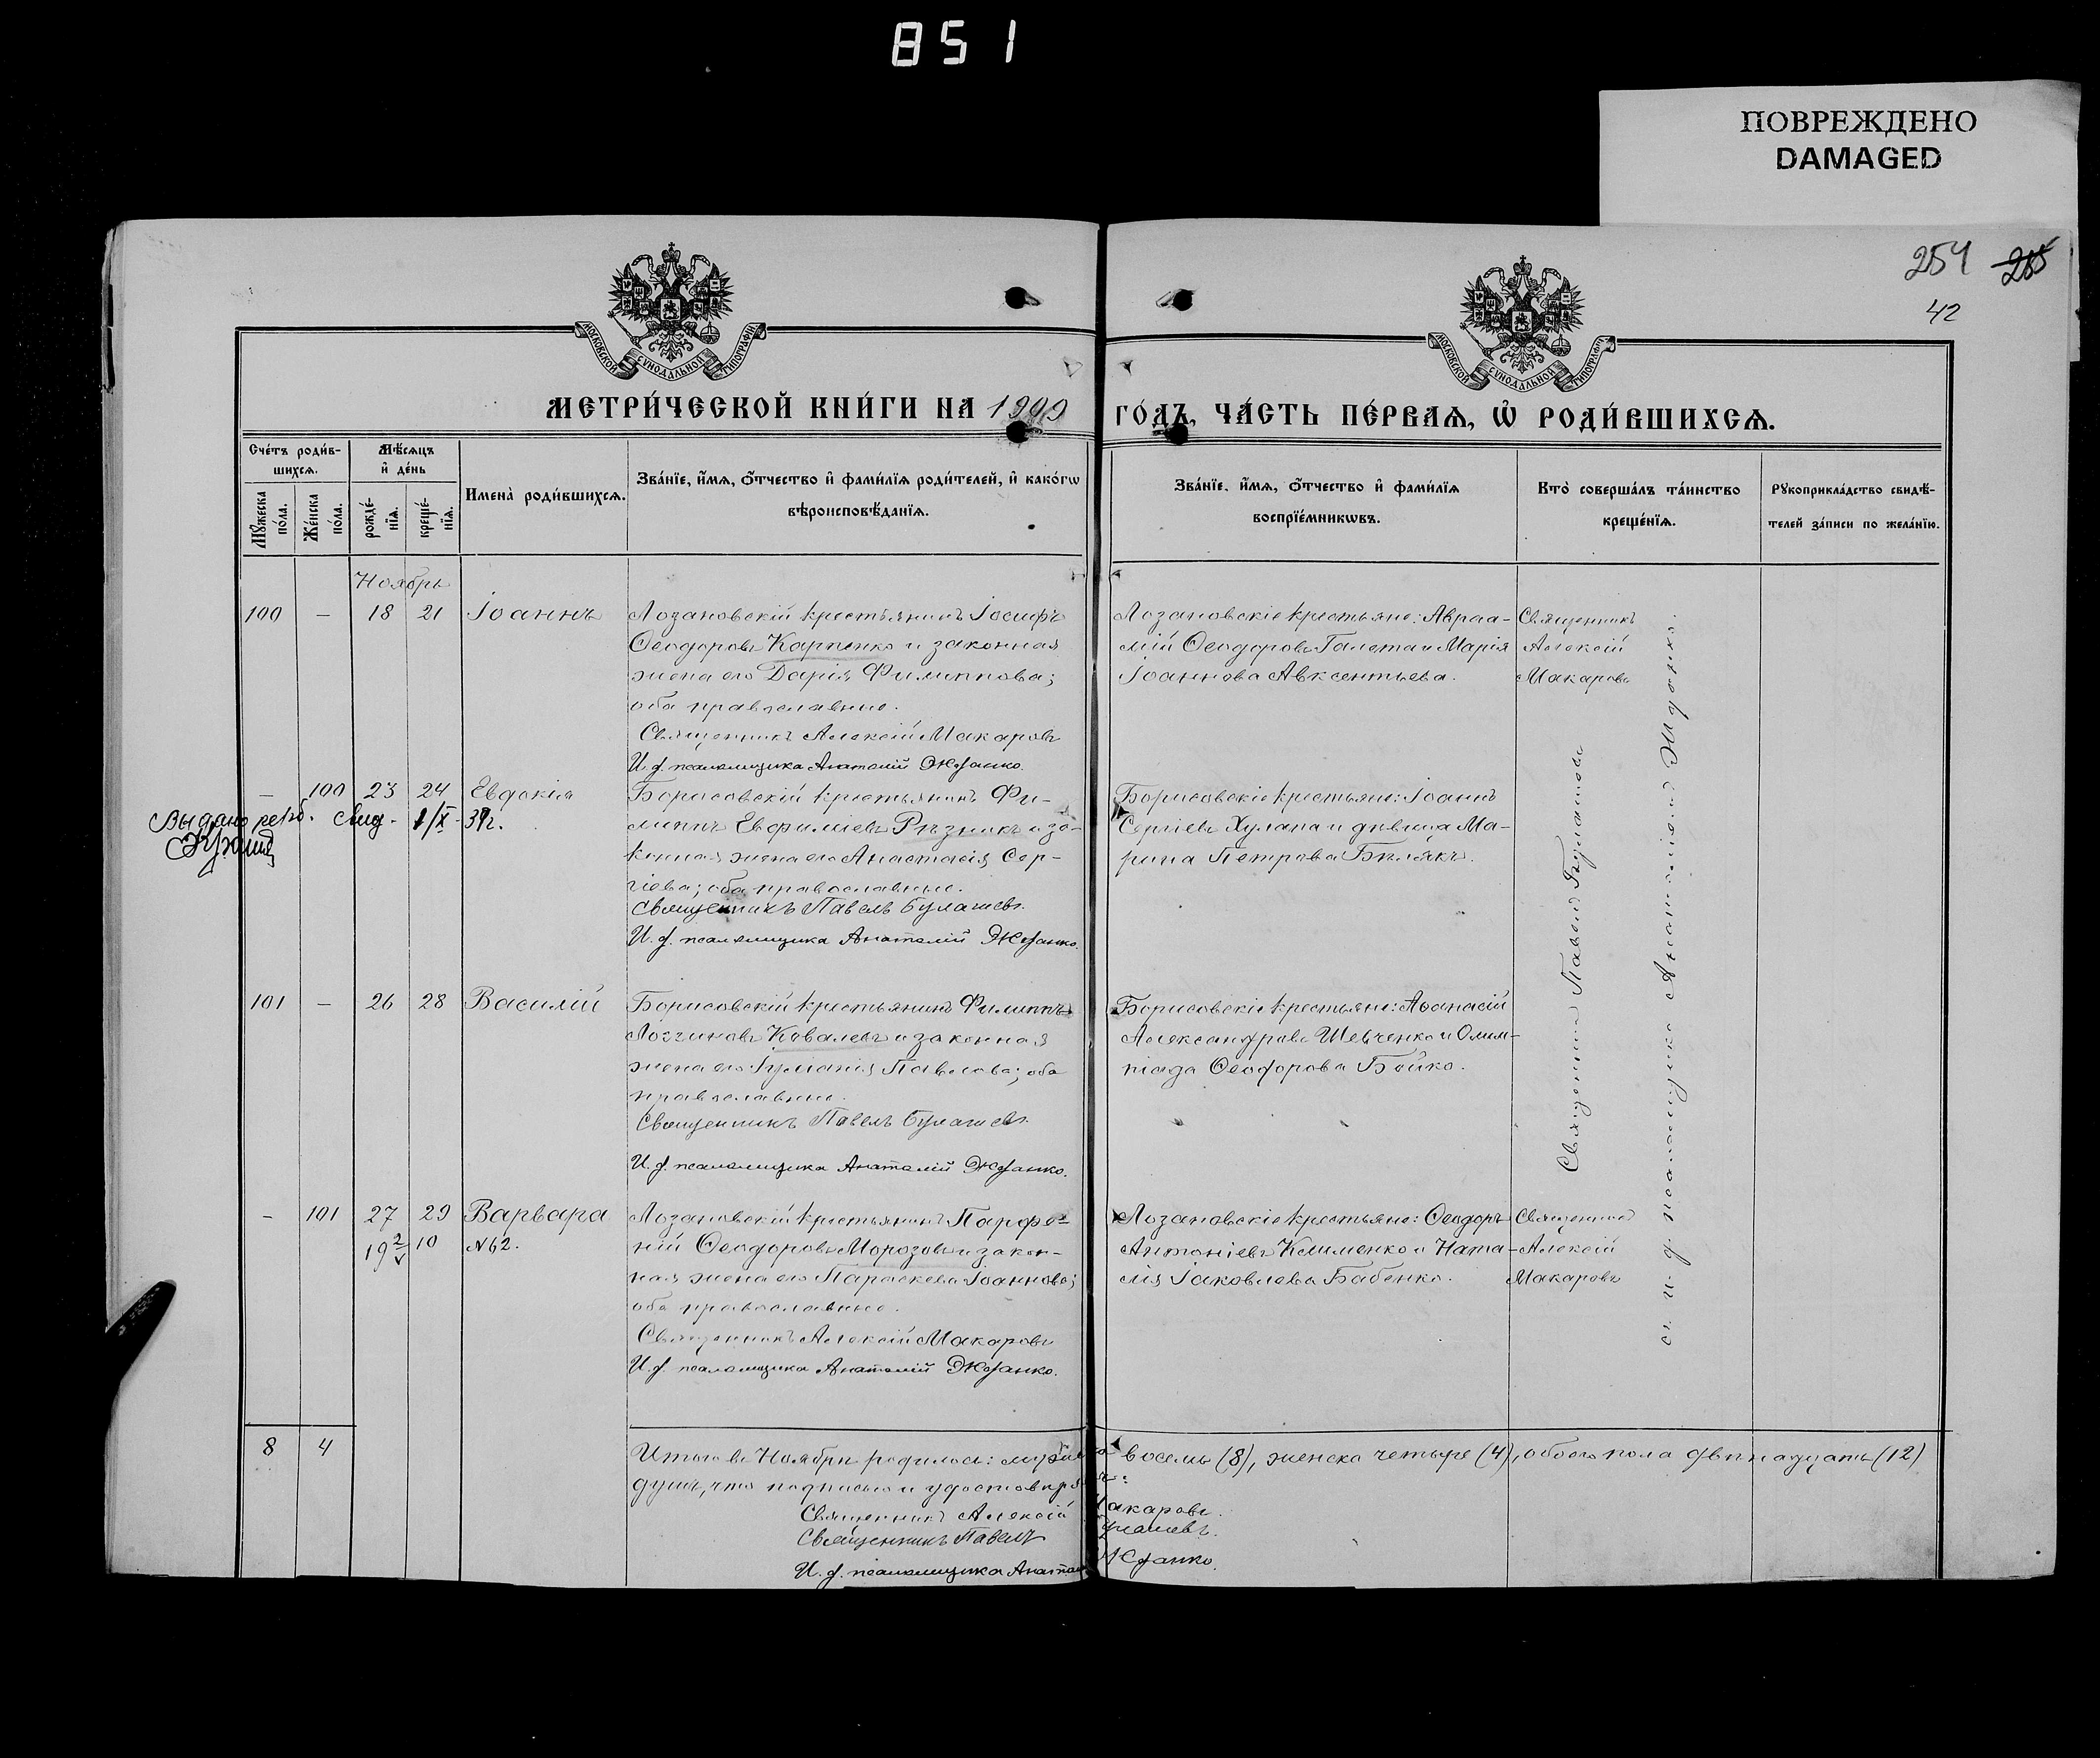 851
ПОВРЕЖДЕНО
DAMAGED
254 255
42
МОСКОВСКОЙ СѴНОДАЛЬНОЙ ТИПОГРАФІИ
МОСКОВСКОЙ СѴНОДАЛЬНОЙ ТИПОГРАФІИ
МЕТРИ́ЧЕСКОЙ КНИ́ГИ НА 1909 ГО́ДЪ, ЧА́СТЬ ПЕ́РВАѦ, Ѡ҆ РОДИ́ВШИХСѦ.
Сче́тъ роди́в-
шихсѧ.
Мꙋжеска по́ла.
Же́нска по́ла.
Мѣ́сѧцъ
и҆ де́нь
рожде́-
нїѧ.
креще́-
нїѧ.
Имена̀ роди́вшихсѧ.
Зва́нїе, и҆́мѧ, о҆́тчество и҆ фами́лїѧ роди́телей, и҆ како́гѡ
вѣроисповѣ́данїѧ.
Зва́нїе, и҆́мѧ, о҆́тчество и҆ фами́лїѧ
воспрїе́мникѡвъ.
Кто̀ соверша́лъ та́инство
креще́нїѧ.
Рꙋкоприкла́дство свидѣ́-
телей за́писи по жела́нїю.
Ноябрь
100 — 18 21 Іоаннъ
Лозановскій крестьянинъ Іосифъ
Ѳеодоровъ Карпенко и законная
жена его Дарія Филиппова;
оба православные.
Священникъ Алексій Макаровъ
И. д. псаломщика Анатолій
Лозановскіе крестьяне: Авраа-
мій Ѳеодоровъ Галета и Марія
Іоаннова Авксентьева.
Священникъ
Алексій
Макаровъ
— 100 23 24 Евдокія
Выдано свид. 1/X-37г.
Борисовскій крестьянинъ Фи-
липпъ Евфиміевъ Рѣзникъ и за-
конная жена его Анастасія Сер-
гіева; оба православные.
Священникъ Павелъ Булашевъ.
И. д. псаломщика Анатолій
Борисовскіе крестьяне: Іоаннъ
Сергіевъ Хулапа и дѣвица Ма-
рина Петрова Бѣлякъ.
Священникъ Павелъ Булашевъ
съ и. д. псаломщика Анатоліемъ
101 — 26 28 Василій
Борисовскій крестьянинъ Филиппъ
Логгиновъ Ковалевъ и законная
жена его Іуліанія Павлова; оба
православные.
Священникъ Павелъ Булашевъ.
И. д. псаломщика Анатолій
Борисовскіе крестьяне: Аѳанасій
Александровъ Шевченко и Олим-
піада Ѳеодорова Бойко.
— 101 27 29 Варвара
10 №62.
Лозановскій крестьянинъ Парфе-
ній Ѳеодоровъ Морозовъ и закон-
ная жена его Параскева Іоаннова;
оба православные.
Священникъ Алексій Макаровъ
И. д. псаломщика Анатолій
Лозановскіе крестьяне: Ѳеодоръ
Антоніевъ Клименко и Ната-
лія Іаковлева Бабенко.
Священникъ
Алексій
Макаровъ
8 4
Итого въ Ноябрѣ родилось: мужеска восемь (8), женска четыре (4), обоего пола двѣнадцать (12)
душъ, что подписью и удостовѣряемъ:
Священникъ Алексій Макаровъ.
Священникъ Павелъ Булашевъ.
И. д. псаломщика Анатолій